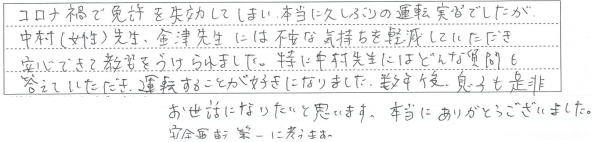 コロナ禍で免許を失効してしまい、本当に久しぶりの運転実習でしたが、
中村(女性)先生、金津先生には不安な気持ちを軽減していただき
安心できて教習をうけられました。特に中村先生にはどんな質問も
答えていただき、運転することが好きになりました。数年後、息子も是非
お世話になりたいと思います。本当にありがとうございました。
安全運転第一に考えます。